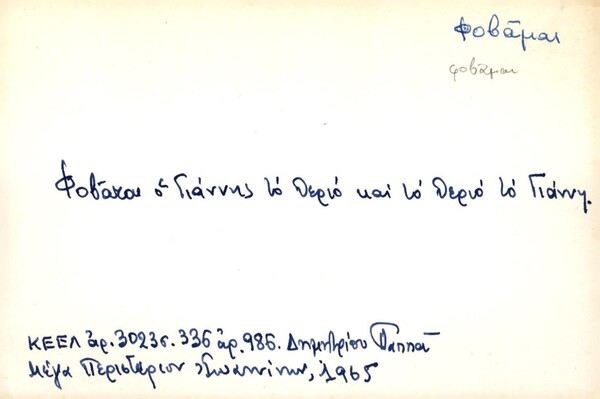 Φοβᾶμαι
φοβᾶμαι
Φοβᾶται ὁ Γιάννης τὸ θεριό καὶ τὸ θεριό τὸ Γιάννη.
ΚΕΕΛ ἀρ. 3023 σ. 336 ἀρ. 986. Δημητρίου Παππᾶ
Μέγα Περιστέριον Ἰωαννίνων, 1965